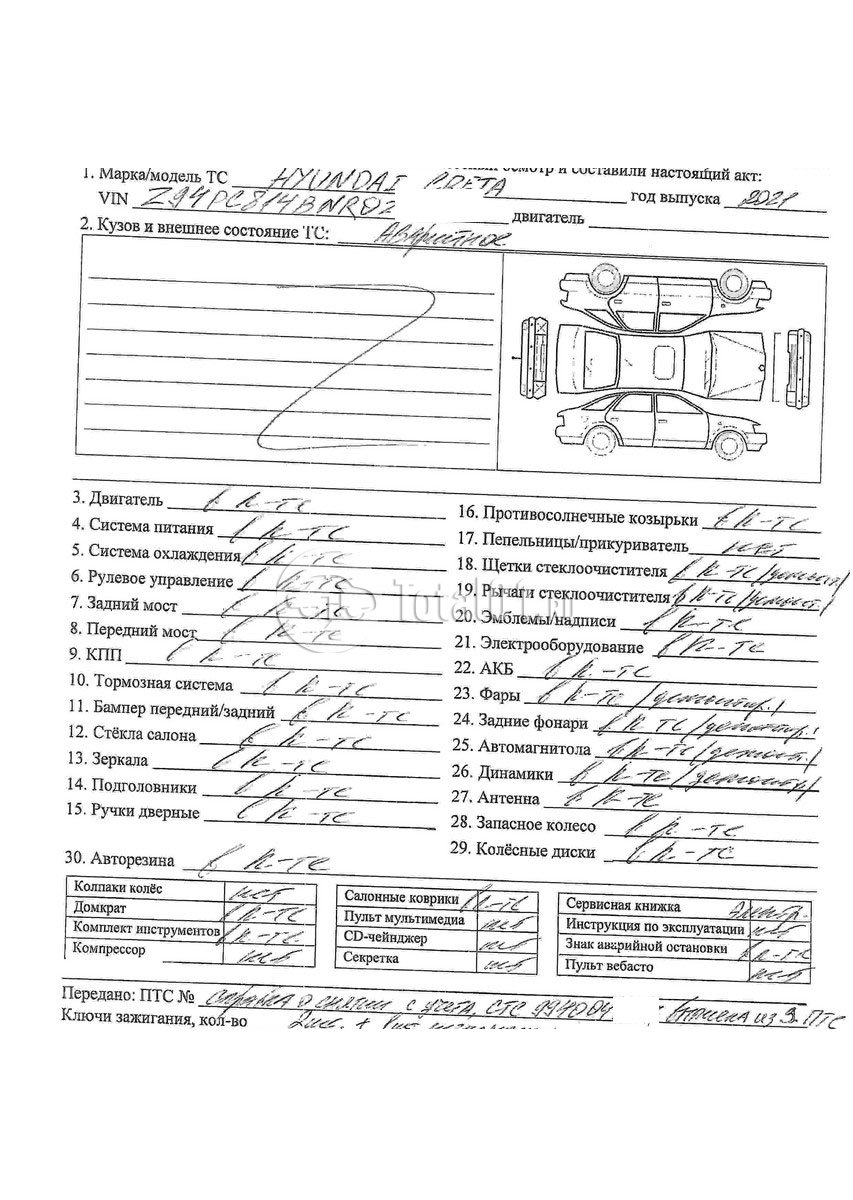 осмотр и составили настоящий акт:
1. Марка/модель ТС HYUNDAI CRETA
VIN Z94PC814BNR02 год выпуска 2021
двигатель
2. Кузов и внешнее состояние ТС: Аварийное
3. Двигатель в к-те
4. Система питания в к-те
5. Система охлаждения в к-те
6. Рулевое управление в к-те
7. Задний мост в к-те
8. Передний мост в к-те
9. КПП в к-те
10. Тормозная система в к-те
11. Бампер передний/задний в к-те
12. Стёкла салона в к-те
13. Зеркала в к-те
14. Подголовники в к-те
15. Ручки дверные в к-те
16. Противосолнечные козырьки в к-те
17. Пепельницы/прикуриватель нет
18. Щетки стеклоочистителя в к-те /демонт./
19. Рычаги стеклоочистителя в к-те /демонт./
20. Эмблемы/надписи в к-те
21. Электрооборудование в к-те
22. АКБ в к-те
23. Фары в к-те /демонтир./
24. Задние фонари в к-те /демонтир./
25. Автомагнитола в к-те /демонт./
26. Динамики в к-те /демонтир/
27. Антенна в к-те
28. Запасное колесо в к-те
29. Колёсные диски в к-те
30. Авторезина в к-те
Колпаки колёс нет
Домкрат в к-те
Комплект инструментов в к-те
Компрессор нет
Салонные коврики в к-те
Пульт мультимедиа нет
CD-чейнджер нет
Секретка нет
Сервисная книжка электр.
Инструкция по эксплуатации нет
Знак аварийной остановки в к-те
Пульт вебасто нет
Передано: ПТС № справка о снятии с учета, СТС 994004 выписка из Э ПТС
Ключи зажигания, кол-во 2шт. +
Total01.ru